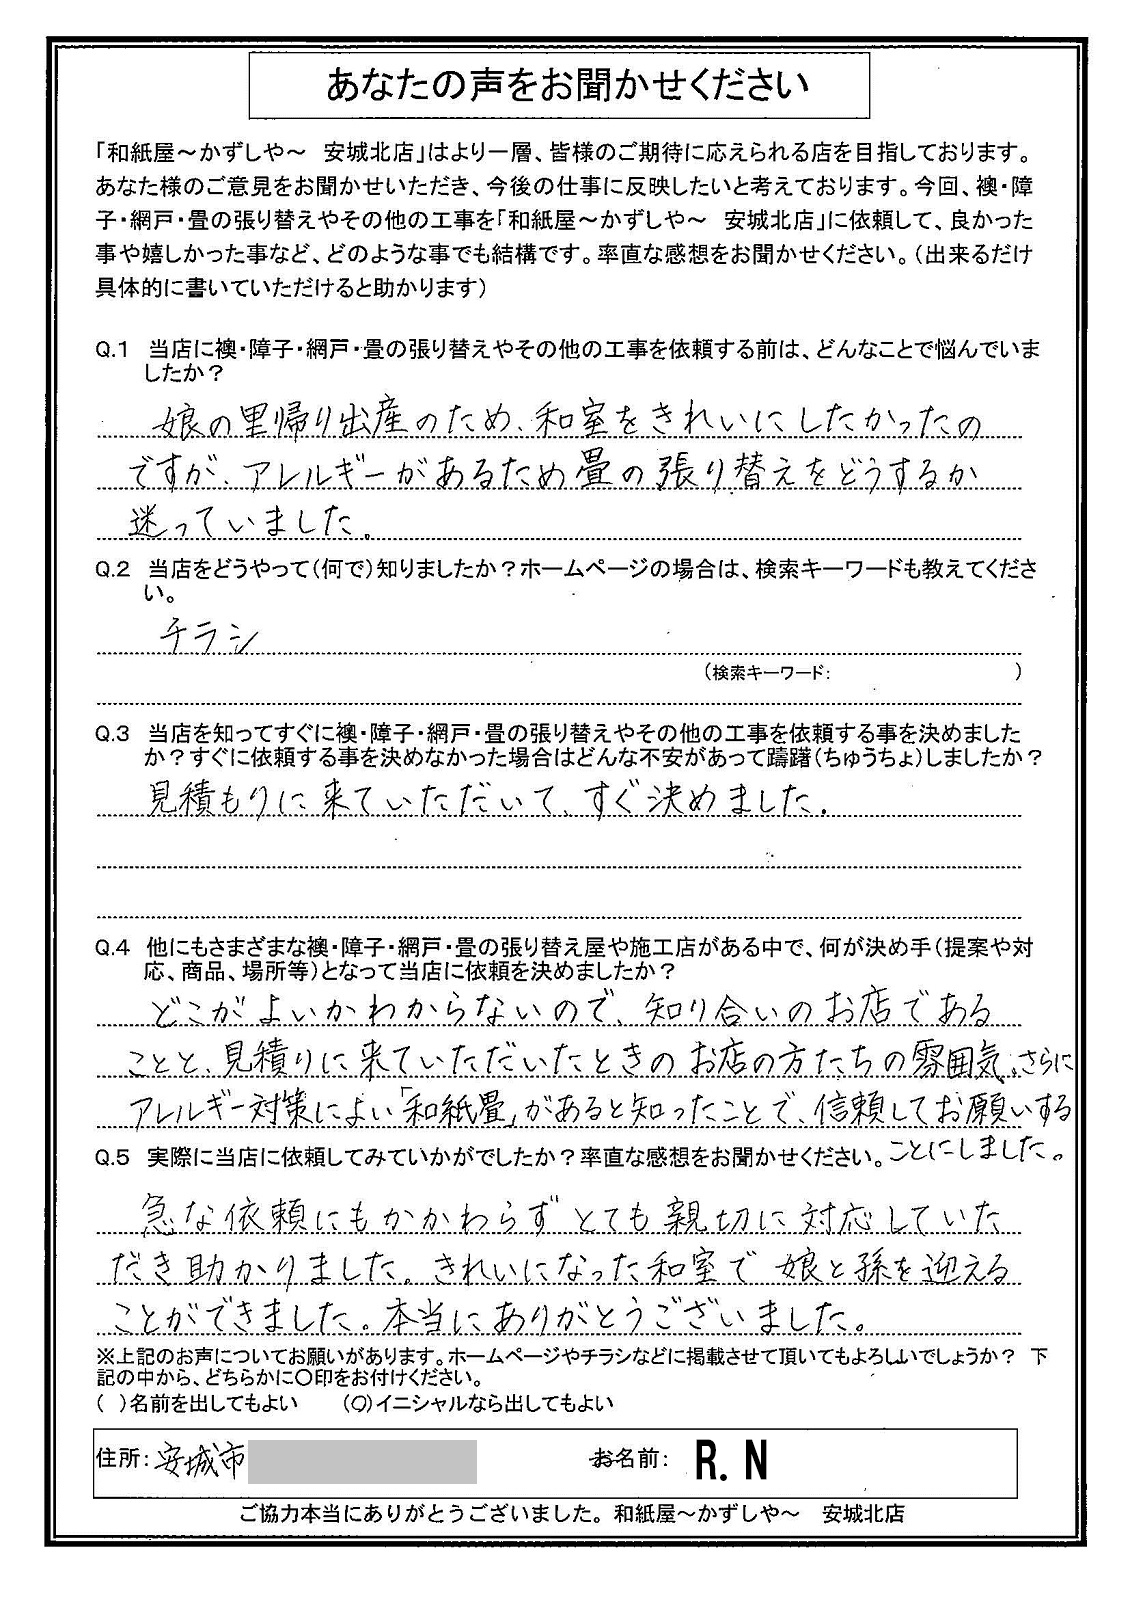 あなたの声をお聞かせください
「和紙屋～かずしや～　安城北店」はより一層、皆様のご期待に応えられる店を目指しております。
あなた様のご意見をお聞かせいただき、今後の仕事に反映したいと考えております。今回、襖・障
子・網戸・畳の張り替えやその他の工事を「和紙屋～かずしや～　安城北店」に依頼して、良かった
事や嬉しかった事など、どのような事でも結構です。率直な感想をお聞かせください。（出来るだけ
具体的に書いていただけると助かります）
Q.1　当店に襖・障子・網戸・畳の張り替えやその他の工事を依頼する前は、どんなことで悩んでいま
したか？
娘の里帰り出産のため、和室をきれいにしたかったの
ですが、アレルギーがあるため畳の張り替えをどうするか
迷っていました。
Q.2　当店をどうやって（何で）知りましたか？ホームページの場合は、検索キーワードも教えてくださ
い。
チラシ
（検索キーワード：　　　　　　　　　　）
Q.3　当店を知ってすぐに襖・障子・網戸・畳の張り替えやその他の工事を依頼する事を決めました
か？すぐに依頼する事を決めなかった場合はどんな不安があって躊躇（ちゅうちょ）しましたか？
見積もりに来ていただいて、すぐ決めました.
Q.4　他にもさまざまな襖・障子・網戸・畳の張り替え屋や施工店がある中で、何が決め手（提案や対
応、商品、場所等）となって当店に依頼を決めましたか？
どこがよいかわからないので、知り合いのお店である
ことと、見積りに来ていただいたときのお店の方たちの雰囲気、さらに
アレルギー対策によい「和紙畳」があると知ったことで、信頼してお願いする
ことにしました。
Q.5　実際に当店に依頼してみていかがでしたか？率直な感想をお聞かせください。
急な依頼にもかかわらずとても親切に対応していた
だき助かりました。きれいになった和室で 娘と孫を迎える
ことができました。本当にありがとうございました。
※上記のお声についてお願いがあります。ホームページやチラシなどに掲載させて頂いてもよろしいでしょうか？　下
記の中から、どちらかに○印をお付けください。
（　）名前を出してもよい　　（○）イニシャルなら出してもよい
住所：安城市　　お名前：　R. N
ご協力本当にありがとうございました。和紙屋～かずしや～　安城北店